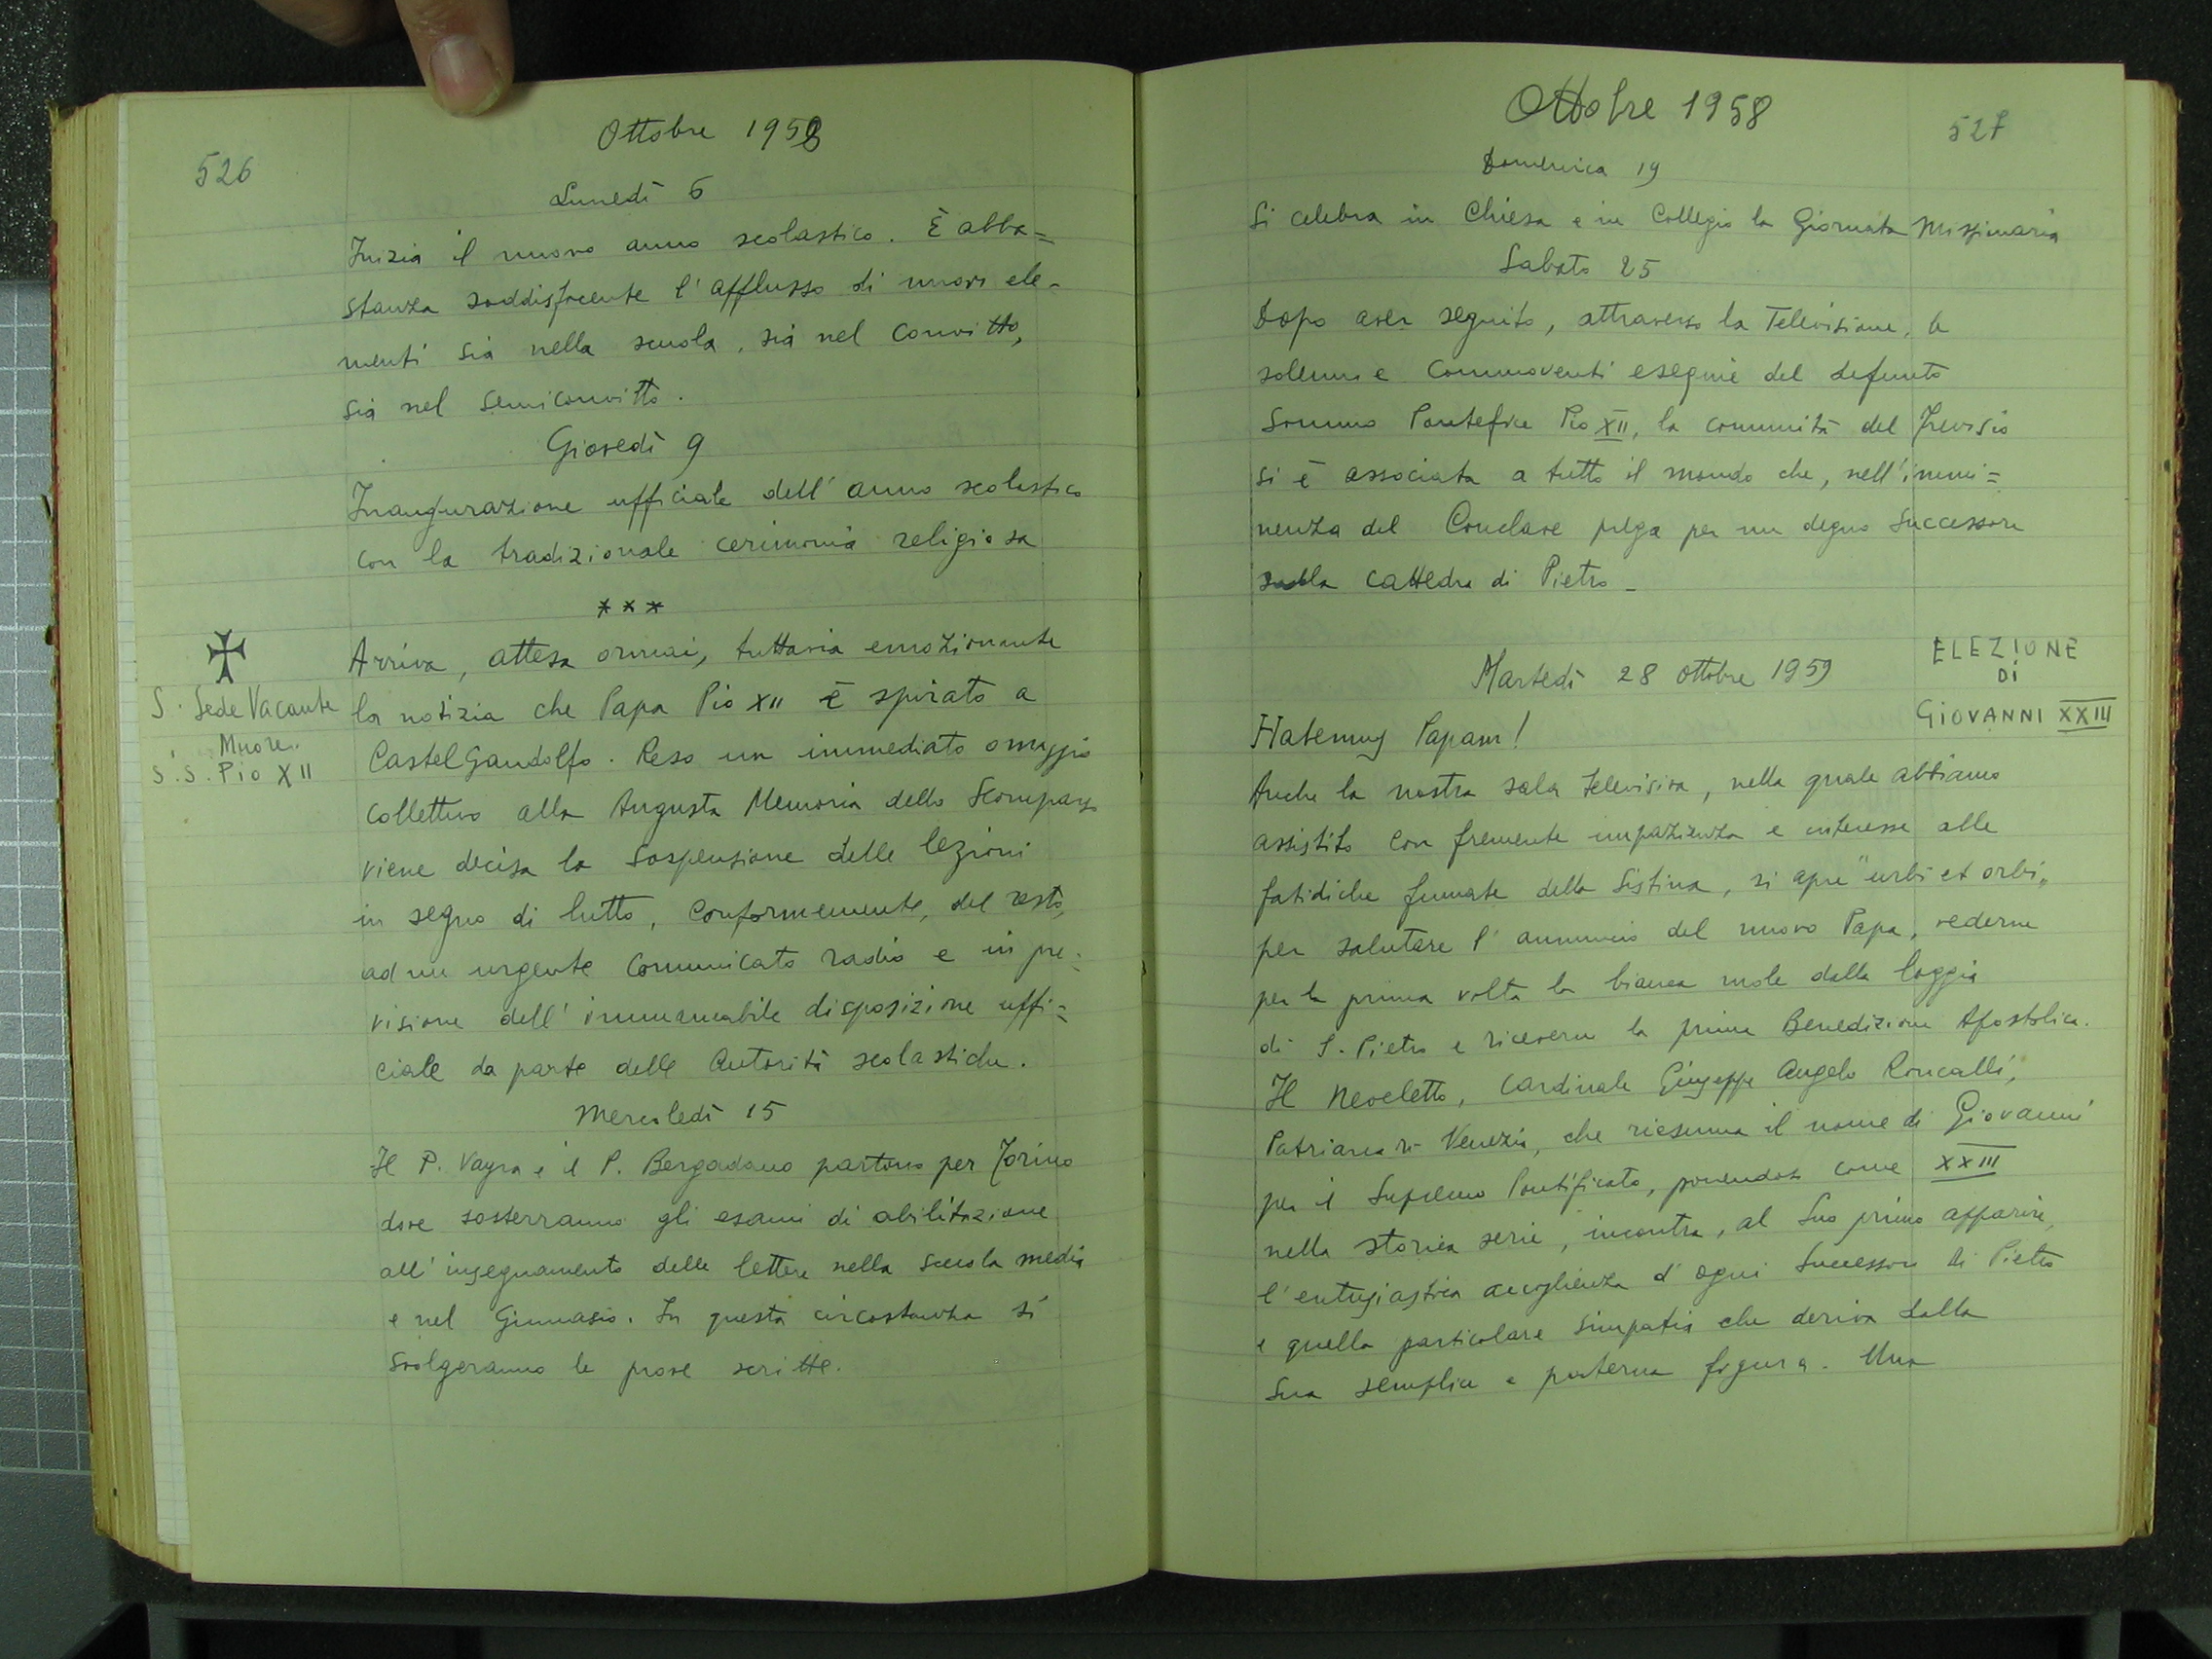 526
Ottobre 1958
Lunedì 6
Inizia il nuovo anno scolastico. È abba=
stanza soddisfacente l'afflusso di nuovi ele-
menti sia nella scuola, sia nel Convitto,
sia nel Semiconvitto.
Giovedì 9
Inaugurazione ufficiale dell'anno scolastico
con la tradizionale cerimonia religiosa
***
Arriva, attesa ormai, tuttavia emozionante
la notizia che Papa Pio XII è spirato a
CastelGandolfo. Reso un immediato omaggio
Collettivo alla Augusta Memoria dello Scomparso
viene decisa la Sospensione delle lezioni
in segno di lutto, Conformemente, del resto,
ad un urgente Comunicato radio e in pre-
visione dell'immancabile disposizione uffi=
ciale da parte delle Autorità scolastiche.
S. Sede Vacante
Muore
S.S. Pio XII
Mercoledì 15
Il P. Vayra e il P. Bergadano partono per Torino
dove sosterranno gli esami di abilitazione
all'insegnamento delle lettere nella Scuola media
e nel Ginnasio. In questa circostanza si
svolgeranno le prove scritte.
Ottobre 1958
527
Domenica 19
Si celebra in Chiesa e in Collegio la Giornata Missionaria
Sabato 25
Dopo aver seguito, attraverso la Televisione, le
solenni e Commoventi esequie del defunto
Sommo Pontefice Pio XII, la comunità del Trevisio
si è associata a tutto il mondo che, nell'immi=
nenza del Conclave prega per un degno Successore
sulla Cattedra di Pietro -
Martedì 28 Ottobre 1959
ELEZIONE
DI
GIOVANNI XXIII
Habemus Papam!
Anche la nostra sala televisiva, nella quale abbiamo
assistito con fremente impazienza e interesse alle
fatidiche fumate della Sistina, si apre "urbi et orbi"
per salutare l'annuncio del nuovo Papa, vederne
per la prima volta la bianca mole dalla loggia
di S. Pietro e riceverne la prima Benedizione Apostolica.
Il Neoeletto, Cardinale Giuseppe Angelo Roncalli,
Patriarca di Venezia, che riesuma il nome di Giovanni
per il Supremo Pontificato, ponendosi come XXIII
nella storica serie, incontra, al Suo primo apparire,
l'entusiastica accoglienza d'ogni Successore di Pietro
e quella particolare Simpatia che deriva dalla
Sua semplice e paterna figura. Una